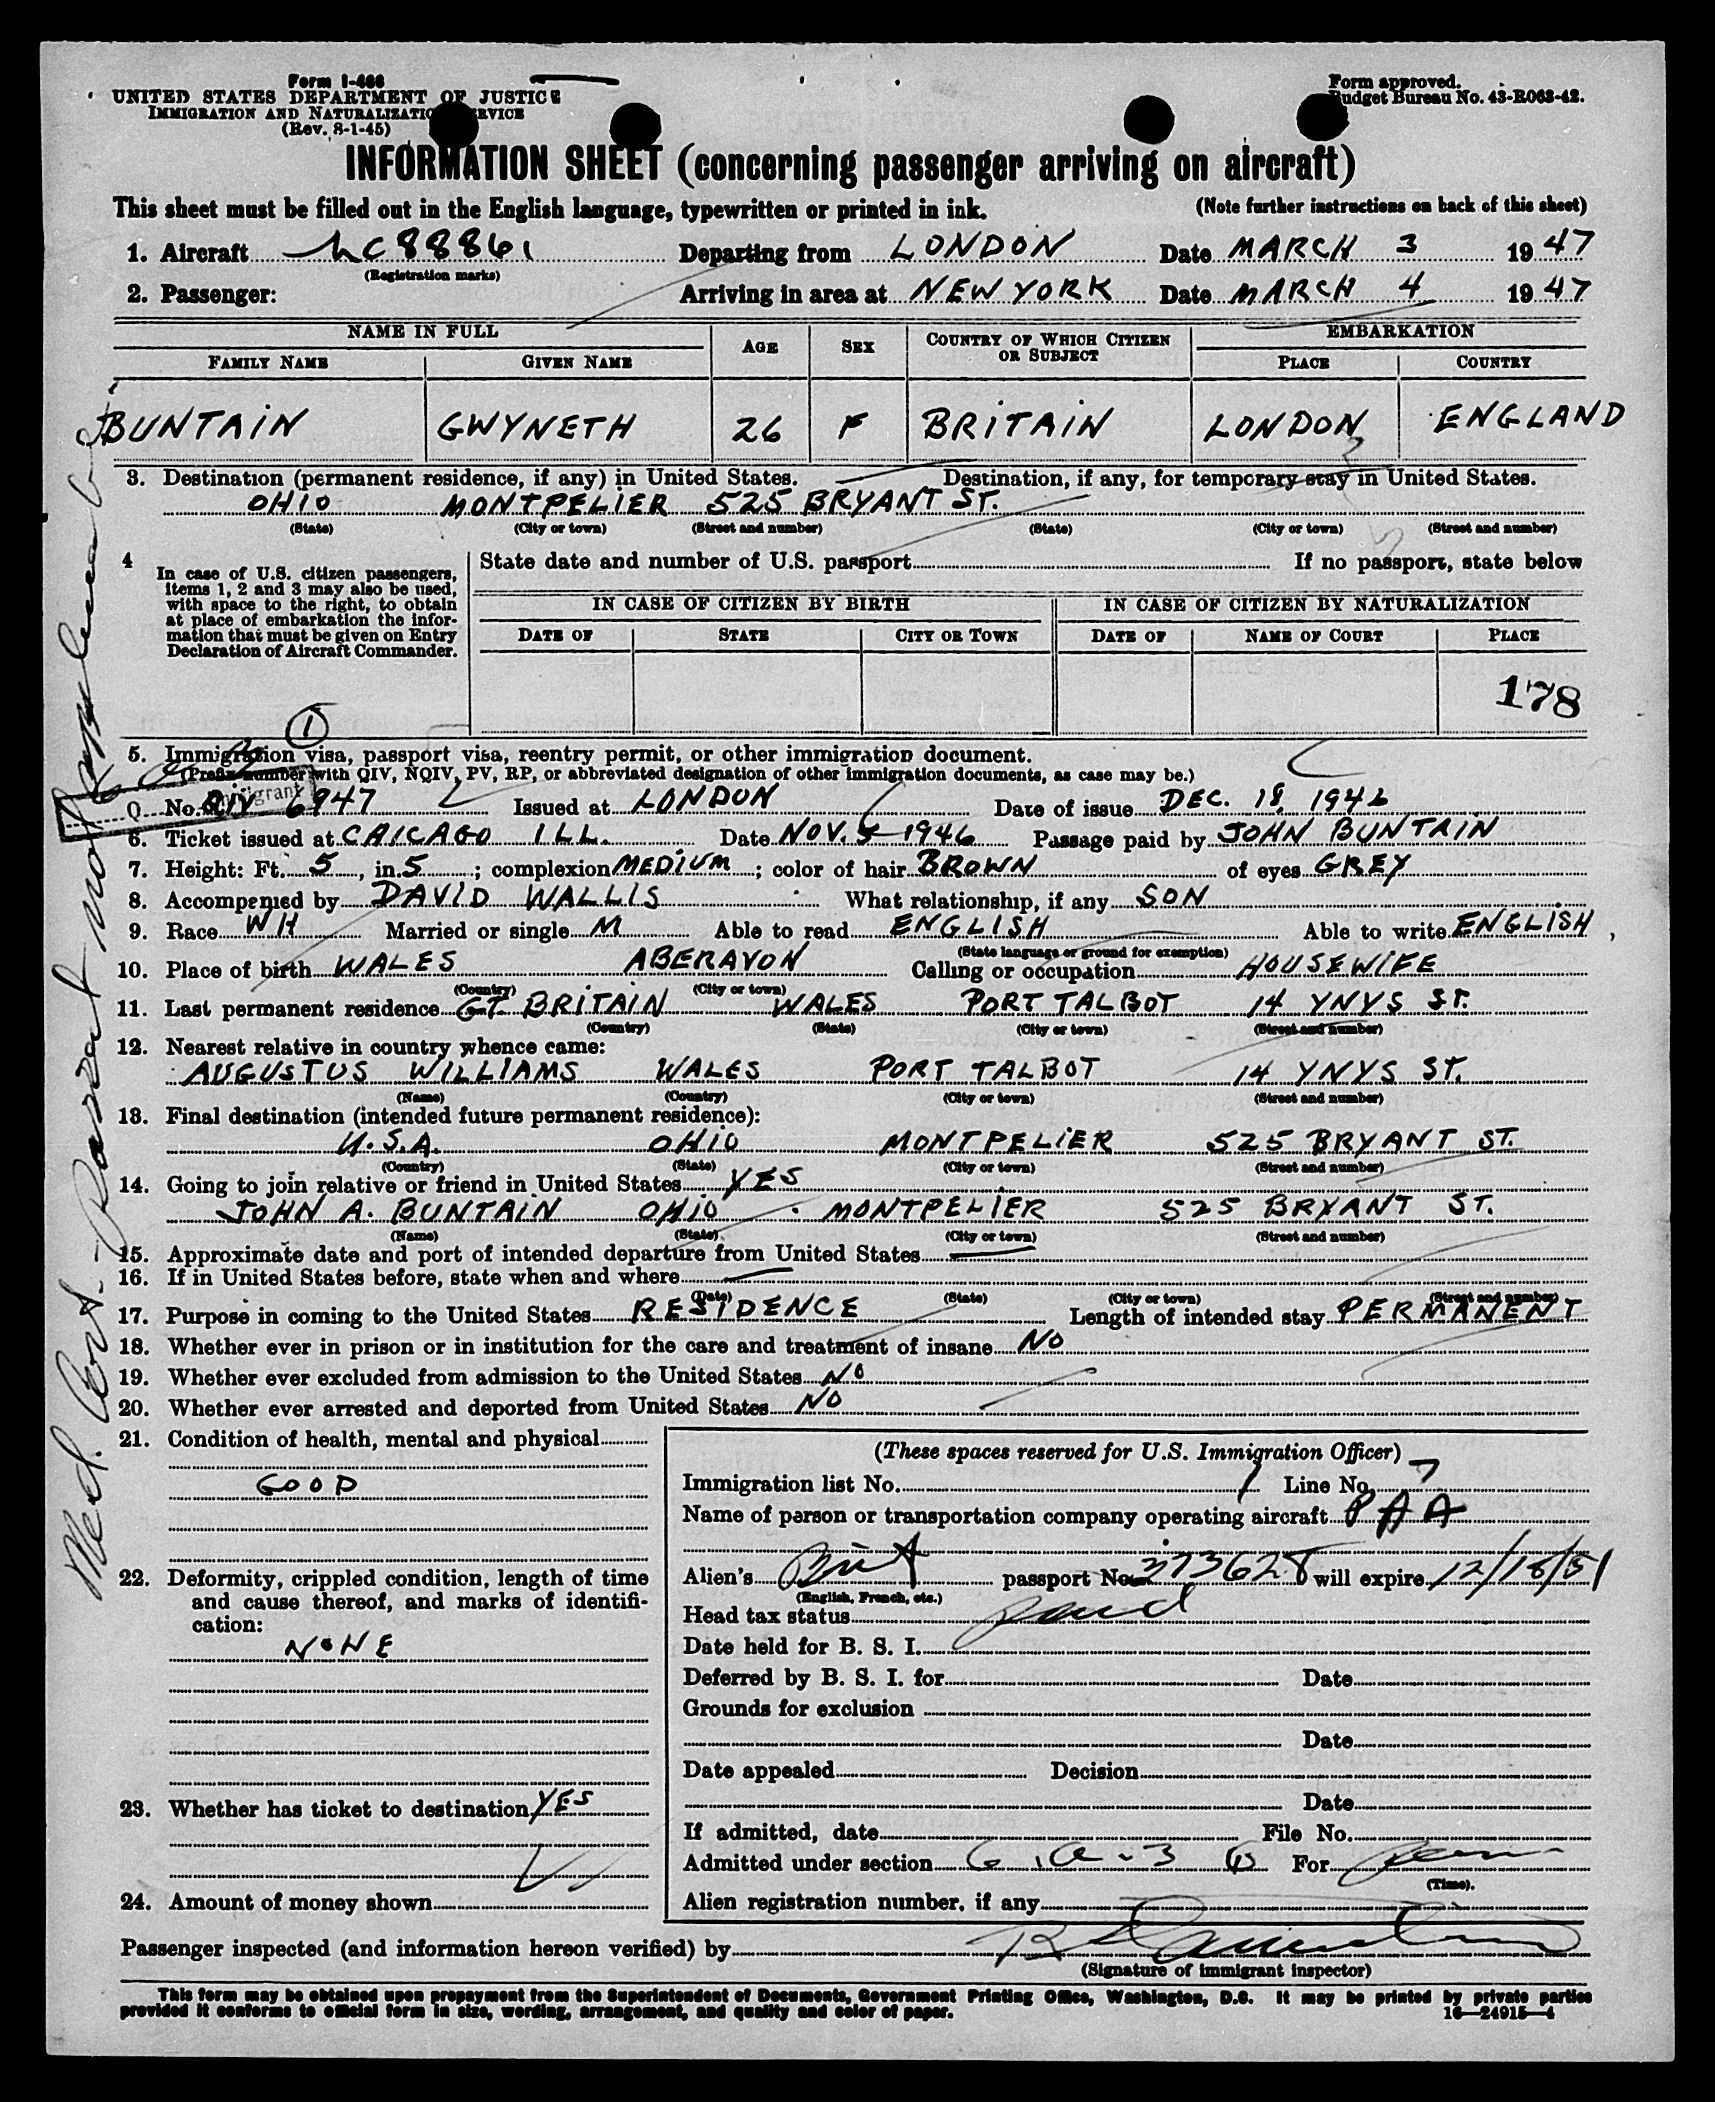 Form I-466
UNITED STATES DEPARTMENT OF JUSTICE
IMMIGRATION AND NATURALIZATION SERVICE
(Rev. 8-1-45)
Form approved.
Budget Bureau No. 43-R063-42.
INFORMATION SHEET (concerning passenger arriving on aircraft)
This sheet must be filled out in the English language, typewritten or printed in ink. (Note further instructions on back of this sheet)
1. Aircraft NC88861 Departing from LONDON Date MARCH 3 1947
(Registration marks)
2. Passenger: Arriving in area at NEW YORK Date MARCH 4 1947
NAME IN FULL AGE SEX COUNTRY OF WHICH CITIZEN OR SUBJECT EMBARKATION
FAMILY NAME GIVEN NAME PLACE COUNTRY
BUNTAIN GWYNETH 26 F BRITAIN LONDON ENGLAND
3. Destination (permanent residence, if any) in United States. Destination, if any, for temporary stay in United States.
OHIO MONTPELIER 525 BRYANT ST.
(State) (City or town) (Street and number) (State) (City or town) (Street and number)
4 In case of U.S. citizen passengers, items 1, 2 and 3 may also be used, with space to the right, to obtain at place of embarkation the information that must be given on Entry Declaration of Aircraft Commander.
State date and number of U.S. passport If no passport, state below
IN CASE OF CITIZEN BY BIRTH IN CASE OF CITIZEN BY NATURALIZATION
DATE OF STATE CITY OR TOWN DATE OF NAME OF COURT PLACE
178
1
5. Immigration visa, passport visa, reentry permit, or other immigration document.
(Prefix number with QIV, NQIV, PV, RP, or abbreviated designation of other immigration documents, as case may be.)
Q No. QIV 6947 Issued at LONDON Date of issue DEC. 18, 1946
6. Ticket issued at CHICAGO ILL. Date NOV. 5 1946 Passage paid by JOHN BUNTAIN
7. Height: Ft. 5, in. 5; complexion MEDIUM; color of hair BROWN of eyes GREY
8. Accompanied by DAVID WALLIS What relationship, if any SON
9. Race WH Married or single M Able to read ENGLISH Able to write ENGLISH,
(State language or ground for exemption)
10. Place of birth WALES ABERAVON Calling or occupation HOUSEWIFE
(Country) (City or town)
11. Last permanent residence GT. BRITAIN WALES PORT TALBOT 14 YNYS ST.
(Country) (State) (City or town) (Street and number)
12. Nearest relative in country whence came:
AUGUSTUS WILLIAMS WALES PORT TALBOT 14 YNYS ST.
(Name) (Country) (City or town) (Street and number)
13. Final destination (intended future permanent residence):
U.S.A. OHIO MONTPELIER 525 BRYANT ST.
(Country) (State) (City or town) (Street and number)
14. Going to join relative or friend in United States YES
JOHN A. BUNTAIN OHIO MONTPELIER 525 BRYANT ST.
(Name) (State) (City or town) (Street and number)
15. Approximate date and port of intended departure from United States —
16. If in United States before, state when and where —
(Date) (State) (City or town) (Street and number)
17. Purpose in coming to the United States RESIDENCE Length of intended stay PERMANENT
18. Whether ever in prison or in institution for the care and treatment of insane NO
19. Whether ever excluded from admission to the United States NO
20. Whether ever arrested and deported from United States NO
21. Condition of health, mental and physical
GOOD
22. Deformity, crippled condition, length of time and cause thereof, and marks of identification:
NONE
23. Whether has ticket to destination YES
24. Amount of money shown
(These spaces reserved for U.S. Immigration Officer)
Immigration list No. 1 Line No. 7
Name of person or transportation company operating aircraft PAA
Alien's Brit passport No. 373628 will expire 12/18/51
(English, French, etc.)
Head tax status paid
Date held for B. S. I.
Deferred by B. S. I. for Date
Grounds for exclusion
Date
Date appealed Decision
Date
If admitted, date File No.
Admitted under section 6.a-3 For perm
(Time).
Alien registration number, if any
Passenger inspected (and information hereon verified) by
(Signature of immigrant inspector)
This form may be obtained upon prepayment from the Superintendent of Documents, Government Printing Office, Washington, D.C. It may be printed by private parties
provided it conforms to official form in size, wording, arrangement, and quality and color of paper. 16—24915-4
Med. Cert. - Parent not